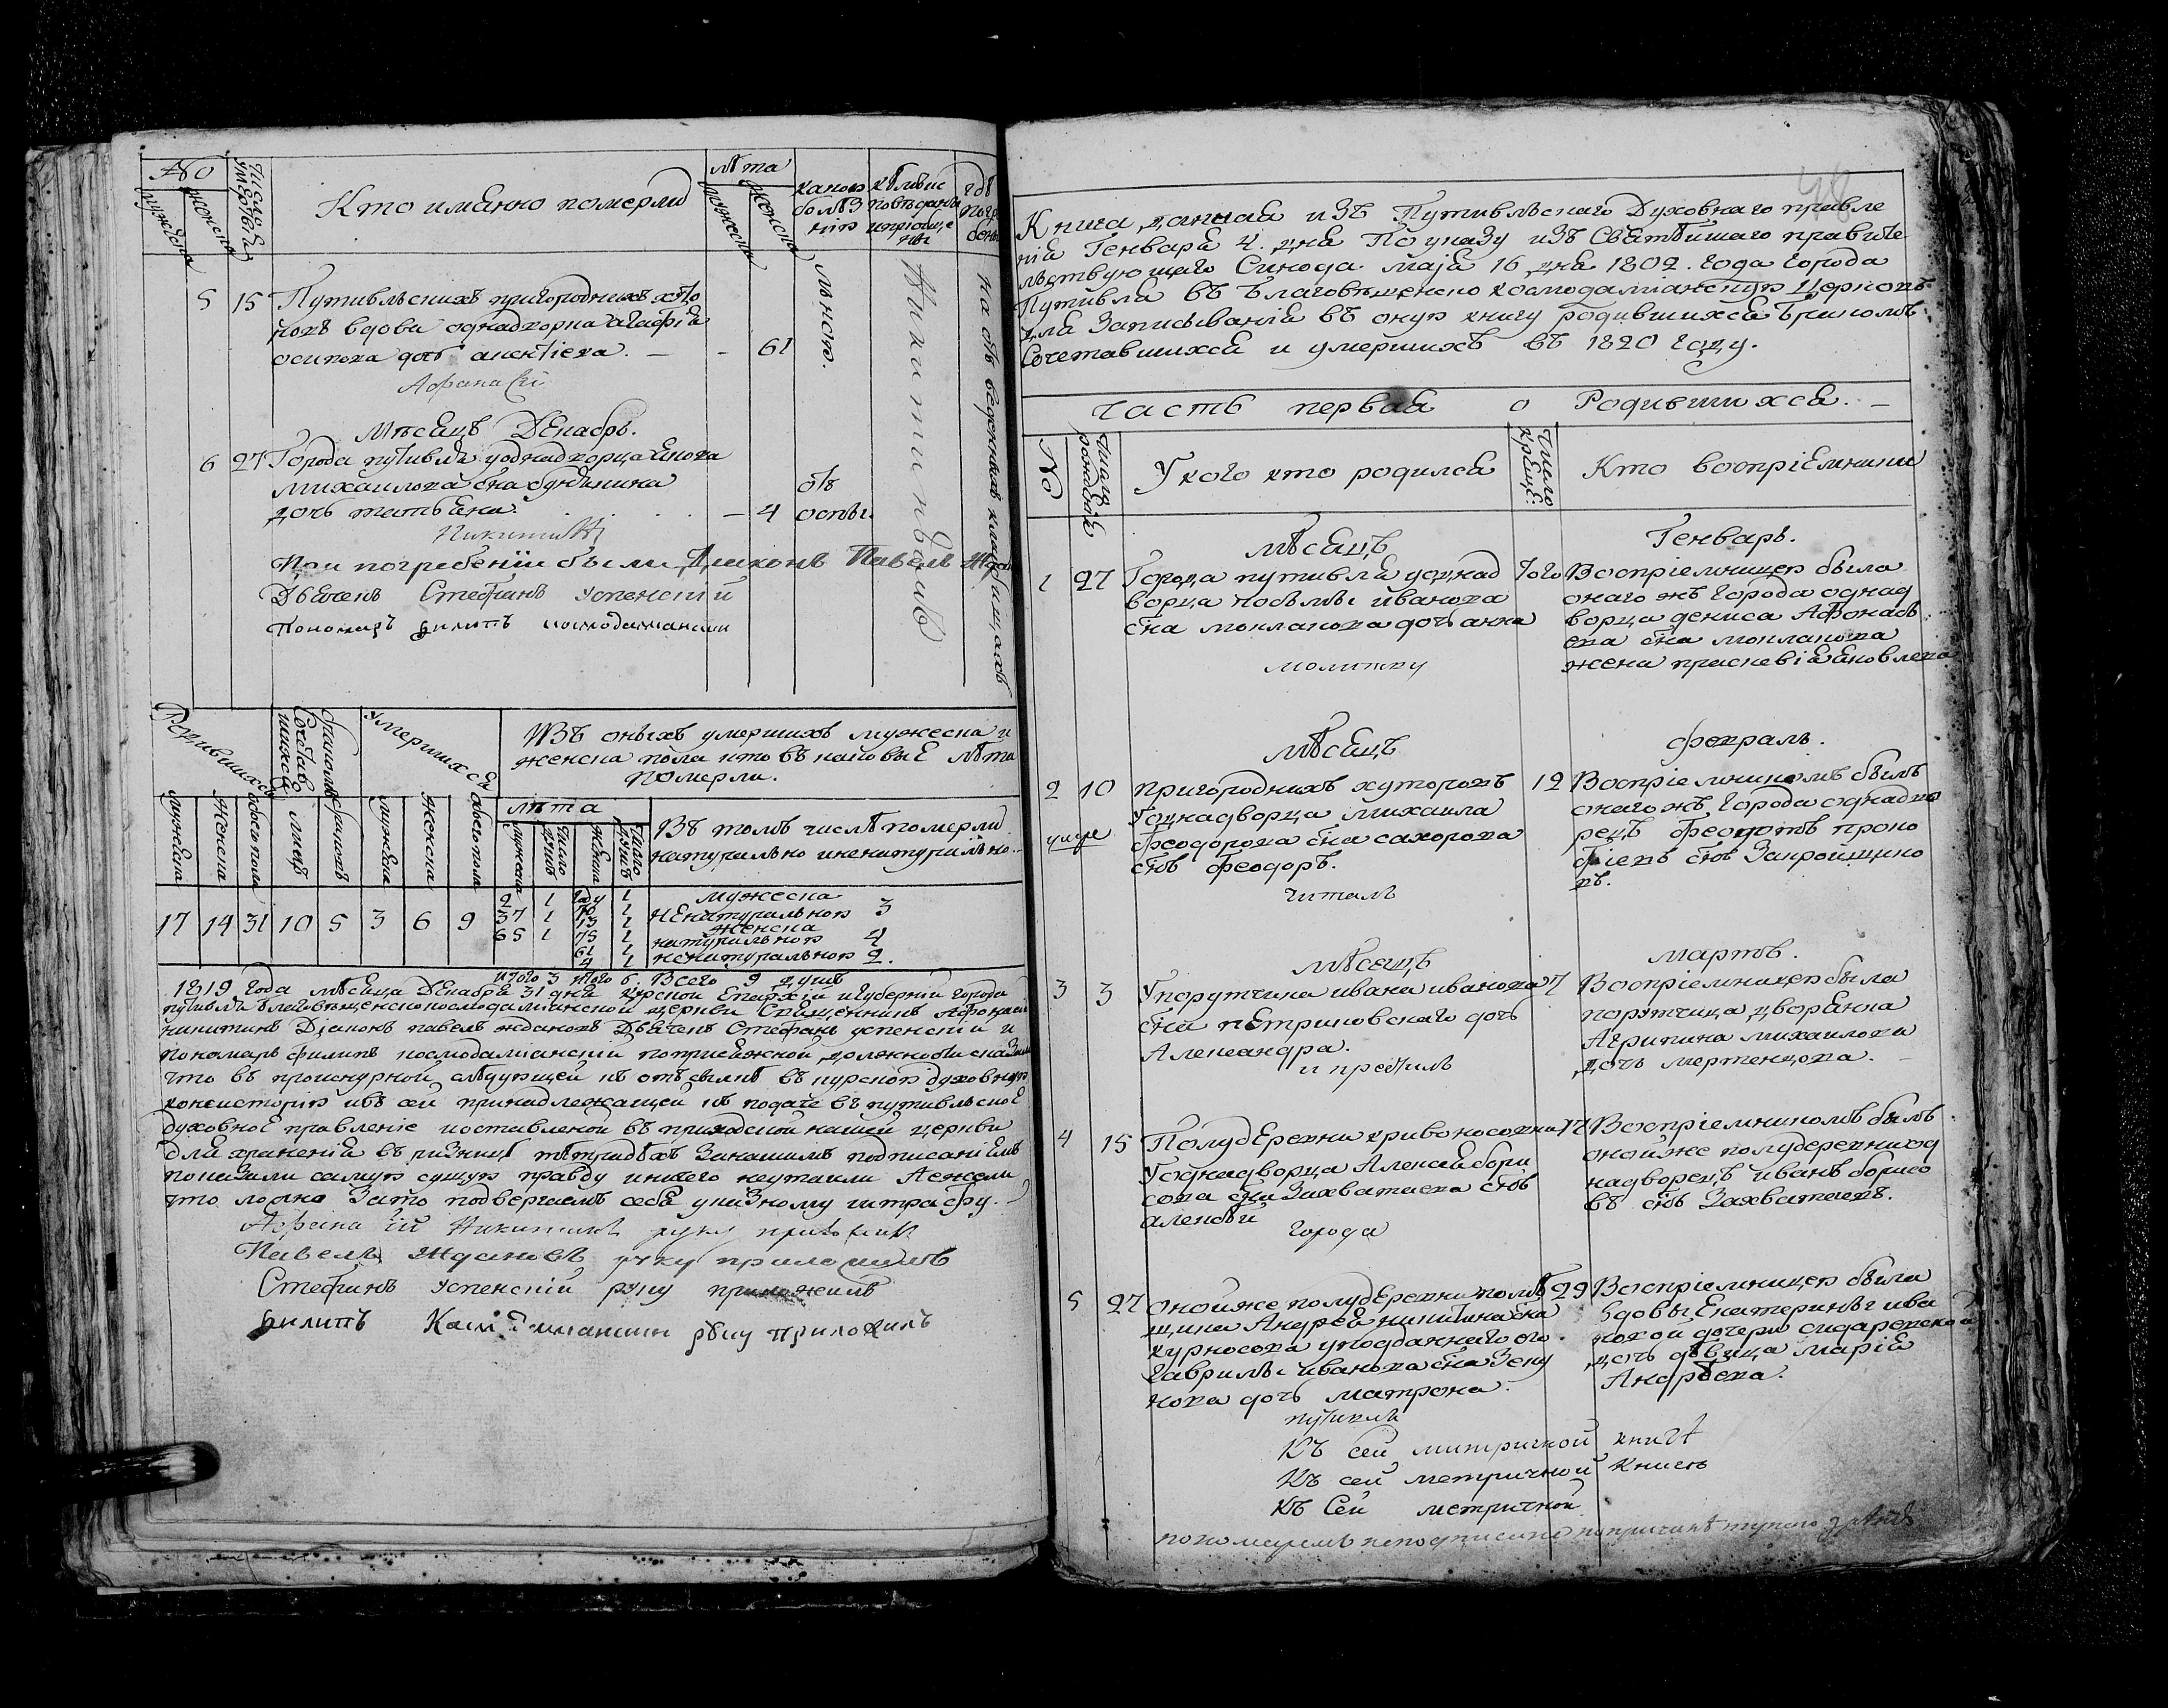 No
мужеска
женска
Число умертвія
Кто имянно померли
лѣта
мужеска
женска
какою болѣзнію
кѣмъ исповѣданы и пріобще ны
гдѣ погре бены
5 15 Путивльскихъ пригородныхъ хуто
ровъ вдова однадворка агафія
осипова доч алексіева. — - 61
лѣнею.
Афанасій
Мѣсяцъ Декабрь.
6 27 Города путивля у однадворца якова
михаилова сна
дочь татьяна. — 4
отъ оспы.
Никитинъ
на обыкновенномъ кладбищѣ
При погребеніи были Диаконъ Павелъ Ждановъ
Дьячекъ Стефанъ Успенскій
Пономарь Филипъ космодамианский
Родившихся
бракомъ Сочетав шихся
Умершихся
Изъ оныхъ умершихъ мужеска и
женска пола кто въ каковые лѣта
померли.
мужеска
женска
обоего пола
лицъ
браковъ
мужеска
женска
обоего пола
лѣта
мужеска
число душъ
женска
число душъ
Въ томъ числѣ померли
натурально и ненатурально.
17 14 31 10 5 3 6 9
2 1 году 1
37 1 1
65 1 13 1
75 1
61 1
4 1
мужеска
ненатуральною 3
женска
натуральною 4
ненатуральною 2.
итого 3 итого 6. Всего 9 душъ
1819 года мѣсяца Декабря 31 дня курской Епархіи и губерніи города
путивля благовѣщенско космодаміанской церкви Священникъ Афонасій
никитинъ Діаконъ павелъ ждановъ Дьячекъ Стефанъ успенскій и
пономарь филипъ космодаміанскій по присяжной должности сказали
что въ прошнурной слѣдующей къ отсылкѣ въ курскую духовную
консисторію и въ сей принадлежащей къ подаче въ путивльское
духовное правленіе и оставленой въ приходской нашей церкви
для храненія въ ризницѣ тетрадѣхъ за нашимъ подписаніемъ
показали самую сущую правду и ничего неутаили А ежели
что ложно за то подвергаемъ себя указному штрафу.
Афанасій Никитинъ руку приложилъ
Павелъ Ждановъ руку приложилъ
Стефанъ Успенскій руку приложилъ
Филипъ руку приложилъ
48
Книга данная изъ Путивльскаго Духовнаго правле
нія Генваря 4. дня По указу изъ Святѣйшаго правите
льствующаго Синода маія 16 дня 1802. года города
Путивля въ благовѣщенско космодаміанскую Церковь
для записыванія въ оную книгу родившихся бракомъ
Сочетавшихся и умершихъ въ 1820 году.
часть первая о Родившихся. —
No
Число рожденія
У кого кто родился
Число крещ:
Кто воспріемники
мѣсяцъ Генварь.
1 27 Города путивля у однад
ворца
сна моклакова доч анна
молитву
Того Воспріемницею была
онаго жъ города однад
ворца дениса Афонась
ева сна моклакова
жена прасковія яковлева
мѣсяцъ февраль.
2 10 пригородныхъ хуторовъ
У однадворца михаила
феодорова сна сахорова
снъ феодоръ.
читалъ
12 Воспріемникомъ былъ
онаго жъ города однадво
рецъ феодотъ проко
фіевъ снъ Закройщико
въ.
мѣсецъ мартъ.
3 3 У порутчика ивана иванова
сна петриковскаго доч
Александра.
и крестилъ
7 Воспріемницею была
порутчица дворянка
Агрипина михаилова
дочь мертенцова.
4 15 Полудеревни кривоносовки
У однадворца Алексея бори
сова сна Захватаева снъ
алексѣй
города
17 Воспріемникомъ былъ
онойже полудеревни од
надворецъ иванъ борисо
въ снъ Захватаевъ.
5 27 онойже полудеревни помѣ
щика Андрея никитина сна
курносова у подданнаго его
гаврилы иванова сна Зену
кова доч матрона.
путивля
29 Воспріемницею была
вдовы Екатерины ива
новой дочери сидаревской
дочь дѣвица марія
Андрѣева.
Къ сей митричной книгѣ
Къ сей метричной книгѣ
Къ Сей метричной